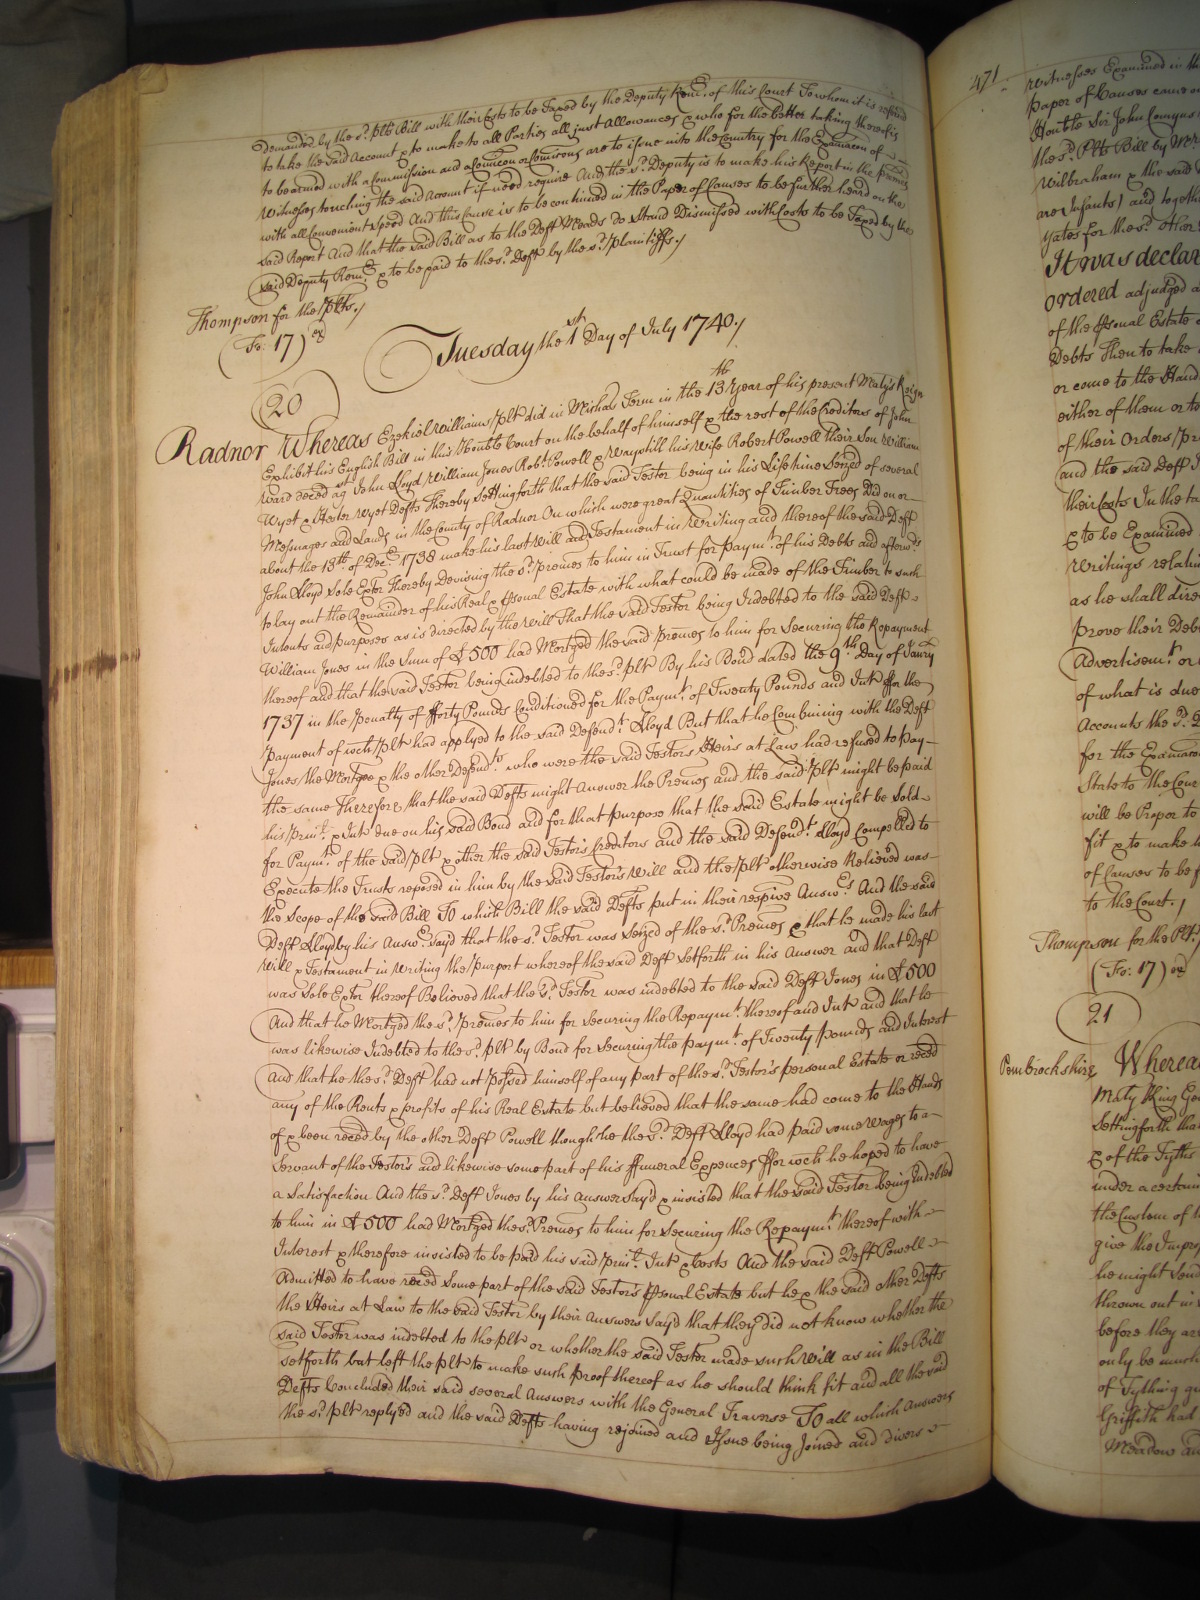 Demanded by the s.d plts Bill with their Costs to be Taxed by the Deputy Rem.r of this Court To whom it is referred
to take the said Account & to make to all Parties all just Allowances & who for the better taking thereof is
to be armed with a Commission and a Comicon or Comicons are to issue into the Country for the Examacon of
Witnesses touching the said Account if need require And the s.d Deputy is to make his Report in the premes
with all Convenient Speed And this Cause is to be continued in the Paper of Causes to be further heard on the
said Report And that the said Bill as to the Deft Meads do Stand Dismissed with Costs to be Taxed by the
said Deputy Rem.r & to be paid to the s.d Deft by the s.d plaintiffs./
Thompson for the plts./
(Fo: 17) ex
Tuesday the 1st Day of July 1740./
20
Radnor Whereas Ezekiel Williams plt did in Michas Term in the 13th Year of his present Matys Reign
Exhibit his English Bill in this Honble Court on the behalf of himself & the rest of the Creditors of John
Ward deced agst John Lloyd William Jones Robt. Powell & Waystill his Wife Robert Powell their Son William
Wyet & Hester Wyet Defts Thereby Setting forth that the said Testor being in his Lifetime Seized of several
Messuages and Lands in the County of Radnor On which were great Quantities of Timber Trees Did on or
about the 13th of Dec.r 1738 make his last Will and Testament in Writing and thereof the said Deft
John Lloyd Sole ExTor Thereby Devising the s.d premes to him in Trust for paym.t of his Debts and afterw.ds
to lay out the Remainder of his Real & psonal Estate with what could be made of the Timber to such
Intents and purposes as is directed by the will That the said Testor being Indebted to the said Deft
William Jones in the Sum of £500 had Mortged the said premes to him for Securing the Repayment
thereof and that the said Testor being indebted to the s.d plt By his Bond dated the 9th Day of Janry
1737 in the penalty of fforty Pounds Conditioned for the Paym.t of Twenty Pounds and Int. ffor the
payment of wch plt had applyed to the said Defend.t Lloyd But that he Combining with the Deft
Jones the Mortgee & the other Defend.ts who were the said Testors Heirs at Law had refused to pay
the same Therefore that the said Defts might Answer the Premes and the said plt might be paid
his prin.l & Int. due on his said Bond and for that purpose that the said Estate might be Sold
for Paym.t of the said plt & other the said Testor's Creditors and the said Defend.t Lloyd Compelled to
Execute the Trusts reposed in him by the said Testors Will and the plt otherwise Relieved was
the Scope of the said Bill To which Bill the said Defts put in their respive Answ.rs And the said
Deft Lloyd by his Answ.r sayd that the s.d Testor was Seized of the s.d Premes & that he made his last
Will & Testament in Writing the purport whereof the said Deft Setforth in his Answer and that Deft
was Sole Extor thereof Believed that the s.d Testor was indebted to the said Deft Jones in £500
And that he Mortged the s.d premes to him for Securing the Repaym.t thereof and Int. and that he
was likewise Indebted to the s.d plt by Bond for Securing the paym.t of Twenty pounds and Interest
And that he the s.d Deft had not possed himself of any part of the s.d Testor's personal Estate or reced
any of the Rents & profits of his Real Estate but believed that the same had come to the Hands
of & been reced by the other Deft Powell though he the s.d Deft Lloyd had paid some Wages to a
Servant of the Testors and likewise some part of his ffuneral Expences ffor wch he hoped to have
a Satisfaction And the s.d Deft Jones by his Answer sayd & insisted that the said Testor being Indebted
to him in £500 had Mortged the s.d Premes to him for Securing the Repaym.t thereof with
Interest & therefore insisted to be paid his said prin.l Int. & Costs And the said Deft Powell
Admitted to have reced Some part of the said Testor's psonal Estate but he & the said other Defts
the Heirs at Law to the said Testor by their Answers Sayd that they did not know whether the
said Testor was indebted to the plt or whether the said Testor made such Will as in the Bill
setforth but left the plt to make such proof thereof as he should think fit and all the said
Defts Concluded their said several Answers with the General Traverse To all which Answers
the s.d plt replyed and the said Defts having rejoined and Issue being Joined and divers
471
Witnesses Examined in
Paper of Causes came
Honble Sir John Comyns
the s.d Plts Bill by Mr
Wilbraham & the said
are Infants) and togeth
Yates for the s.d other
It was declar
ordered adjudged a
of the psonal Estate
Debts Then to take
or come to the Hand
either of them or to
of their Orders
and the said Deft
their Costs In the ta
& to be Examined
Writings relatin
as he shall dire
prove their Deb
Advertisem.t or
of what is due
Accounts the s.d D
for the Examaco
State to the Cour
will be Proper to
fit & to make
of Causes to be f
to the Court./
Thompson for the Plt.
(Fo: 17) ex
21
Pembrockshire Wherea
Maty King Geo
Setting forth that
& of the Tyths
under a certain
the Custom of
give the Impro
he might
thrown out in
before they ar
only be much
of Tything
Griffith had
Meadow an